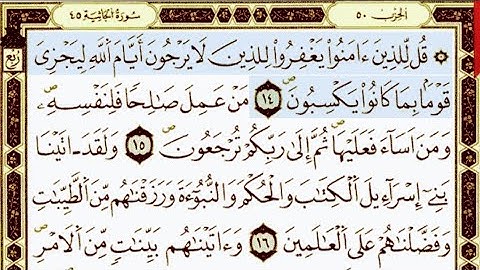 الحزب ٥٠
سورة الجاثية ٤٥
ربع
۞ قُل لِّلَّذِينَ ءَامَنُواْ يَغۡفِرُواْ لِلَّذِينَ لَا يَرۡجُونَ أَيَّامَ ٱللَّهِ لِيَجۡزِيَ
قَوۡمَۢا بِمَا كَانُواْ يَكۡسِبُونَ ١٤ مَنۡ عَمِلَ صَٰلِحٗا فَلِنَفۡسِهِۦ
وَمَنۡ أَسَآءَ فَعَلَيۡهَا ثُمَّ إِلَىٰ رَبِّكُمۡ تُرۡجَعُونَ ١٥ وَلَقَدۡ ءَاتَيۡنَا
بَنِيٓ إِسۡرَٰٓءِيلَ ٱلۡكِتَٰبَ وَٱلۡحُكۡمَ وَٱلنُّبُوَّةَ وَرَزَقۡنَٰهُم مِّنَ ٱلطَّيِّبَٰتِ
وَفَضَّلۡنَٰهُمۡ عَلَى ٱلۡعَٰلَمِينَ ١٦ وَءَاتَيۡنَٰهُم بَيِّنَٰتٖ مِّنَ ٱلۡأَمۡرِ